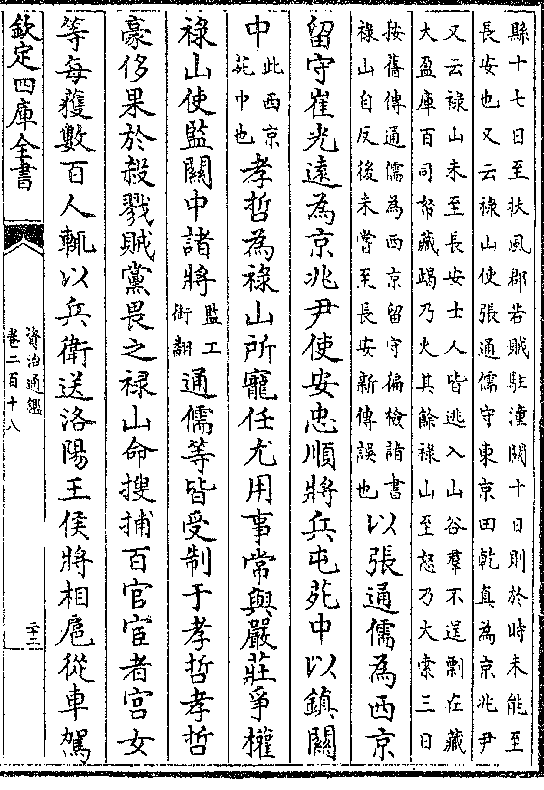 縣十七日至扶風郡若賊駐潼關十日則於時未能至
長安也又云祿山使張通儒守東京田乾真為京兆尹
又云祿山未至長安士人皆逃入山谷羣不逞剽左藏
大盈庫百司帑藏竭乃火其餘祿山至怒乃大索三日
按舊傳通儒為西京留守徧檢諸書
祿山自反後未嘗至長安新傳誤也
以張通儒為西京
留守崔光遠為京兆尹使安忠順將兵屯苑中以鎮關
中
此西京
苑中也
孝哲為祿山所寵任尤用事常與嚴莊爭權
祿山使監關中諸將
監工
銜翻
通儒等皆受制于孝哲孝哲
豪侈果於殺戮賊黨畏之祿山命搜捕百官宦者宮女
等每獲數百人輒以兵衛送洛陽王侯將相扈從車駕
欽定四庫全書
資治通鑑
卷二百十八
二十三